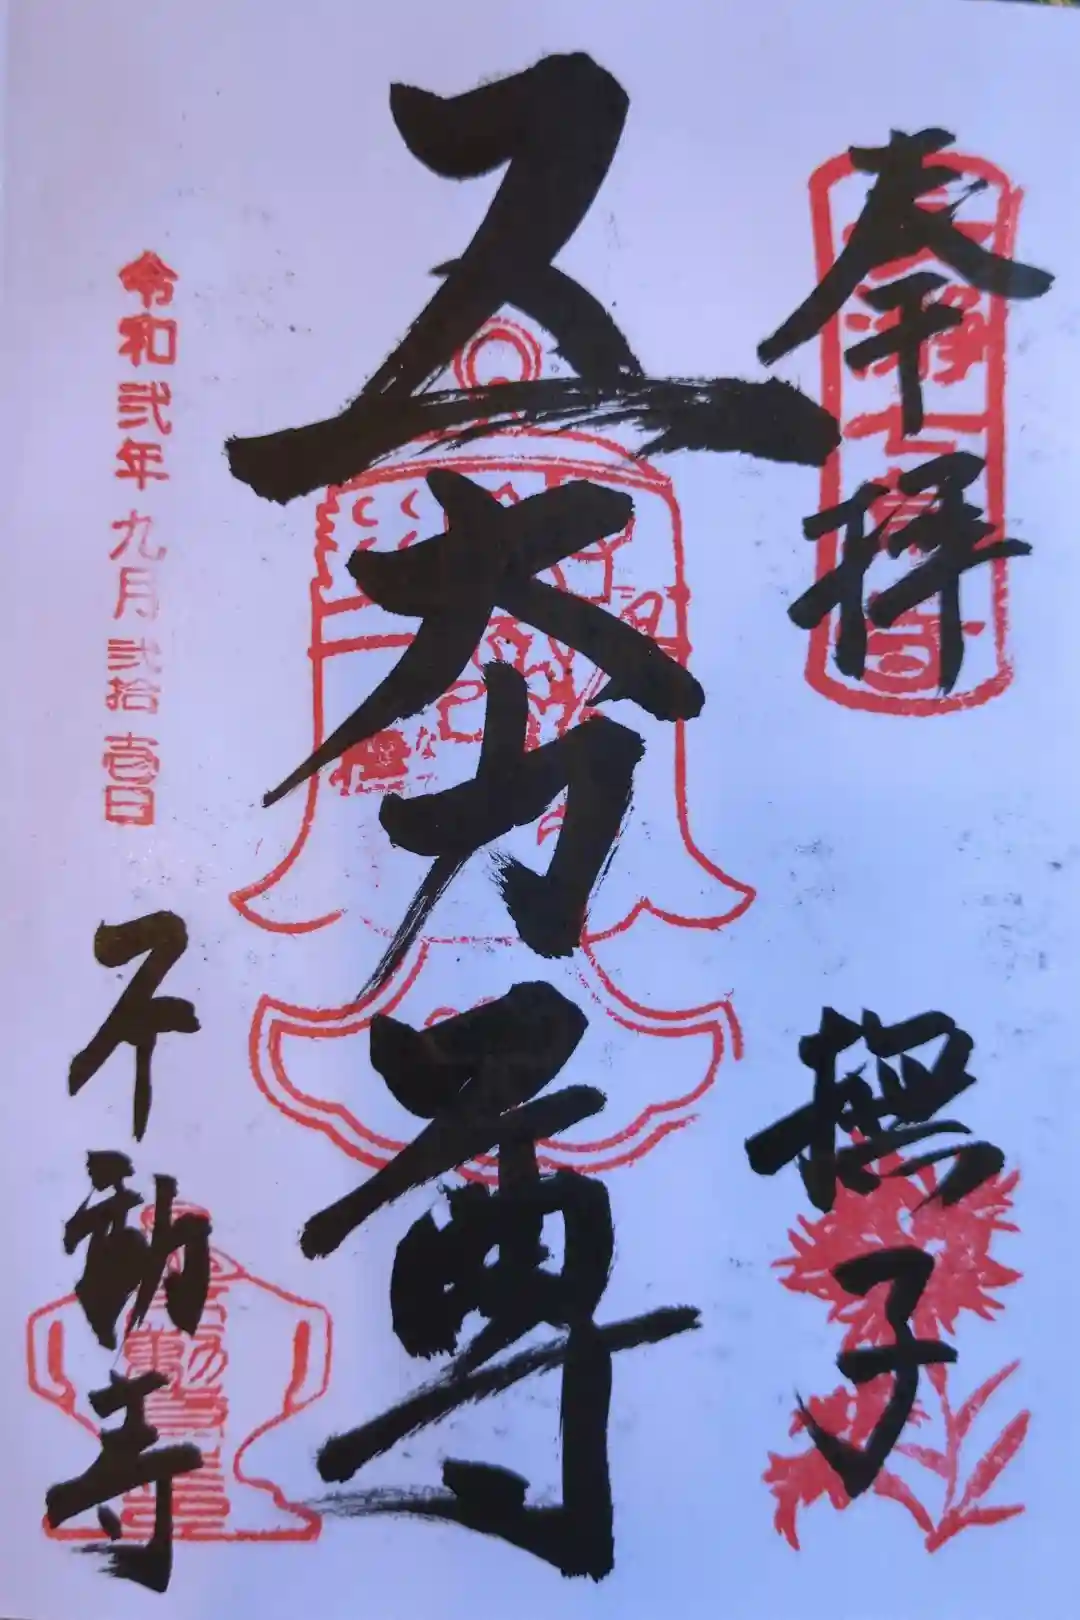 奉拝
撫子
五大力尊
令和弐年九月弐拾壱日
不動寺